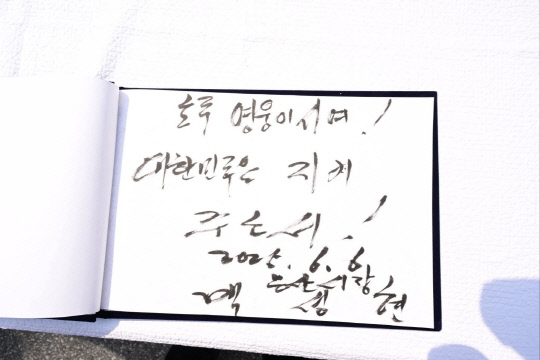 호국 영웅이시여!
대한민국을 지켜
주소서!
2025. 6. 6
논산시장
백 성 현